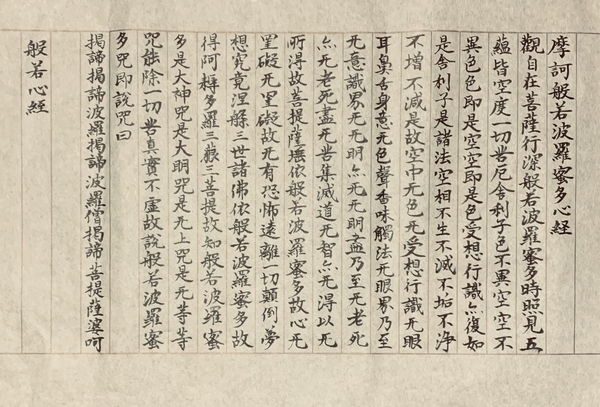 摩訶般若波羅蜜多心經
觀自在菩薩行深般若波羅蜜多時照見五
蘊皆空度一切苦厄舍利子色不異空空不
異色色即是空空即是色受想行識亦復如
是舍利子是諸法空相不生不滅不垢不淨
不增不減是故空中无色无受想行識无眼
耳鼻舌身意无色聲香味觸法无眼界乃至
无意識界无无明亦无无明盡乃至无老死
亦无老死盡无苦集滅道无智亦无得以无
所得故菩提薩埵依般若波羅蜜多故心无
罣礙无罣礙故无有恐怖遠離一切顛倒夢
想究竟涅槃三世諸佛依般若波羅蜜多故
得阿耨多羅三藐三菩提故知般若波羅蜜
多是大神咒是大明咒是无上咒是无等等
咒能除一切苦真實不虛故說般若波羅蜜
多咒即說咒曰
揭諦揭諦波羅揭諦波羅僧揭諦菩提薩婆呵
般若心經